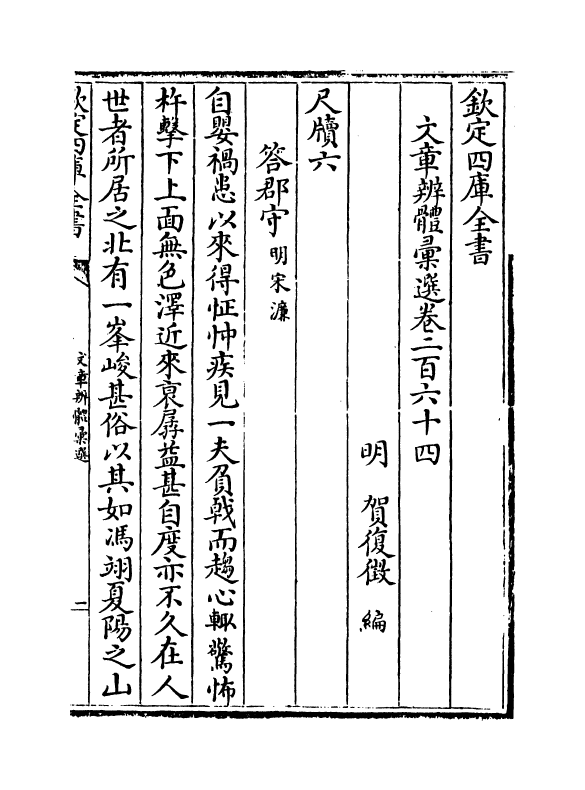 欽定四庫全書
文章辨體彙選卷二百六十四
明 賀復徵 編
尺牘六
答郡守 明宋濂
自嬰禍患以來得怔忡疾見一夫負戟而趨心輙驚怖
杵擊下上面無色澤近來衰孱益甚自度亦不久在人
世者所居之北有一峯峻甚俗以其如馮翊夏陽之山
欽定四庫全書
文章辨體彙選